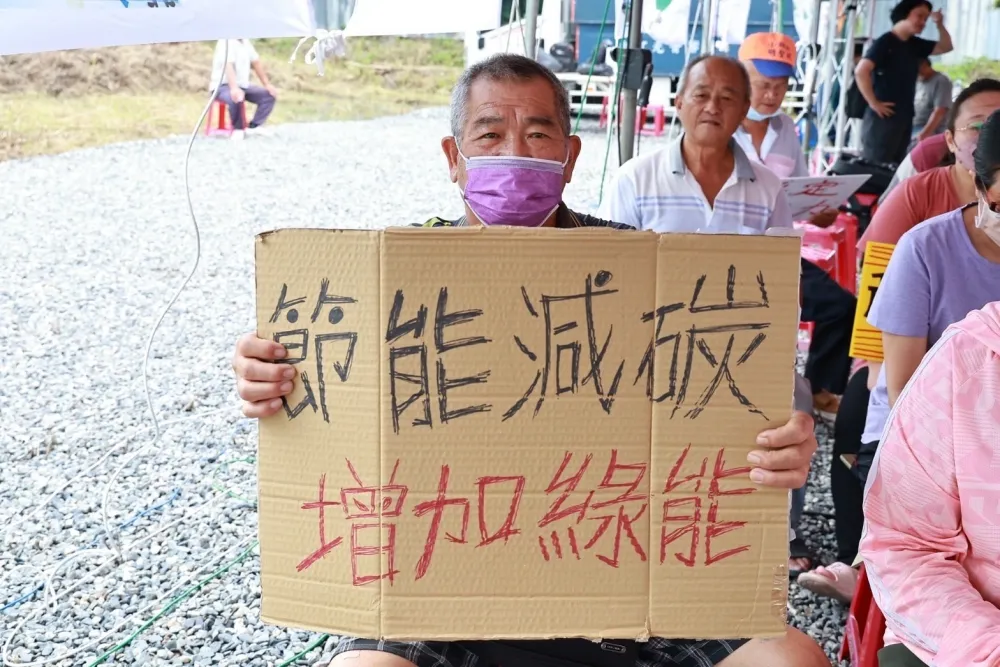 節能減碳
增加綠能